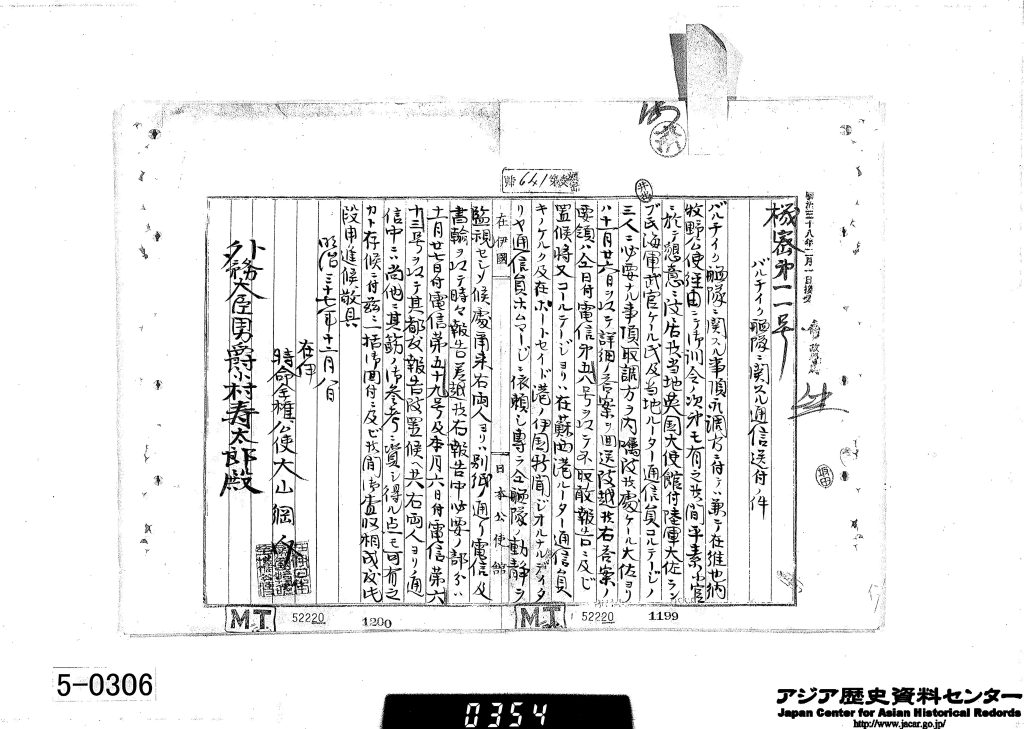 明治三十八年一月一日接受
機密第一一号
バルチイク艦隊ニ関スル通信送付ノ件
バルチイク艦隊ニ関スル事項取調方ニ付テハ兼テ在維也納
牧野公使経由ニテ御訓令ノ次第モ有之候間平素小官
ニ於テ懇意ニ致居候当地英国大使館付陸軍大佐ラン
ブ氏海軍武官ケール氏及当地ルーター通信員コルテージノ
三人ニ必要ナル事項取調方ヲ内嘱致候処ケール大佐ヨリ
ハ十月廿六日ヲ以テ詳細ノ答案ヲ回送致越候右答案ノ
要領ハ仝日付電信第五八号ヲ以テ不取敢報告ニ及ビ
置候将又コールテージヨリハ在蘇西港ルーター通信員
キノケルク及在ポートセイド港ノ伊国新聞ジオルナルディタ
リヤ通信員ホムマージニ依頼シ専ラ仝艦隊ノ動静ヲ
在伊國
日本公使館
監視セシメ候処爾来右両人ヨリハ別紙ノ通リ電信及
書翰ヲ以テ時々報告差越候右報告中必要ノ部分ハ
十一月廿七日付電信第五十九号及本月六日付電信第六
十三号ヲ以テ其都度報告致置候ヘ共右両人ヨリ通
信中ニハ尚他ニ其筋ノ御参考ニ資シ得ル点モ可有之
カト存候ニ付茲ニ一括御回付ニ及ビ候間御査収相成度此
段申進候敬具
明治三十七年十二月八日
在伊
特命全権公使大山綱介
外務大臣男爵小村寿太郎殿
MT
52220
1200
MT
52220
1199
5-0306
0354
アジア歴史資料センター
Japan Center for Asian Historical Records
http://www.jacar.go.jp/